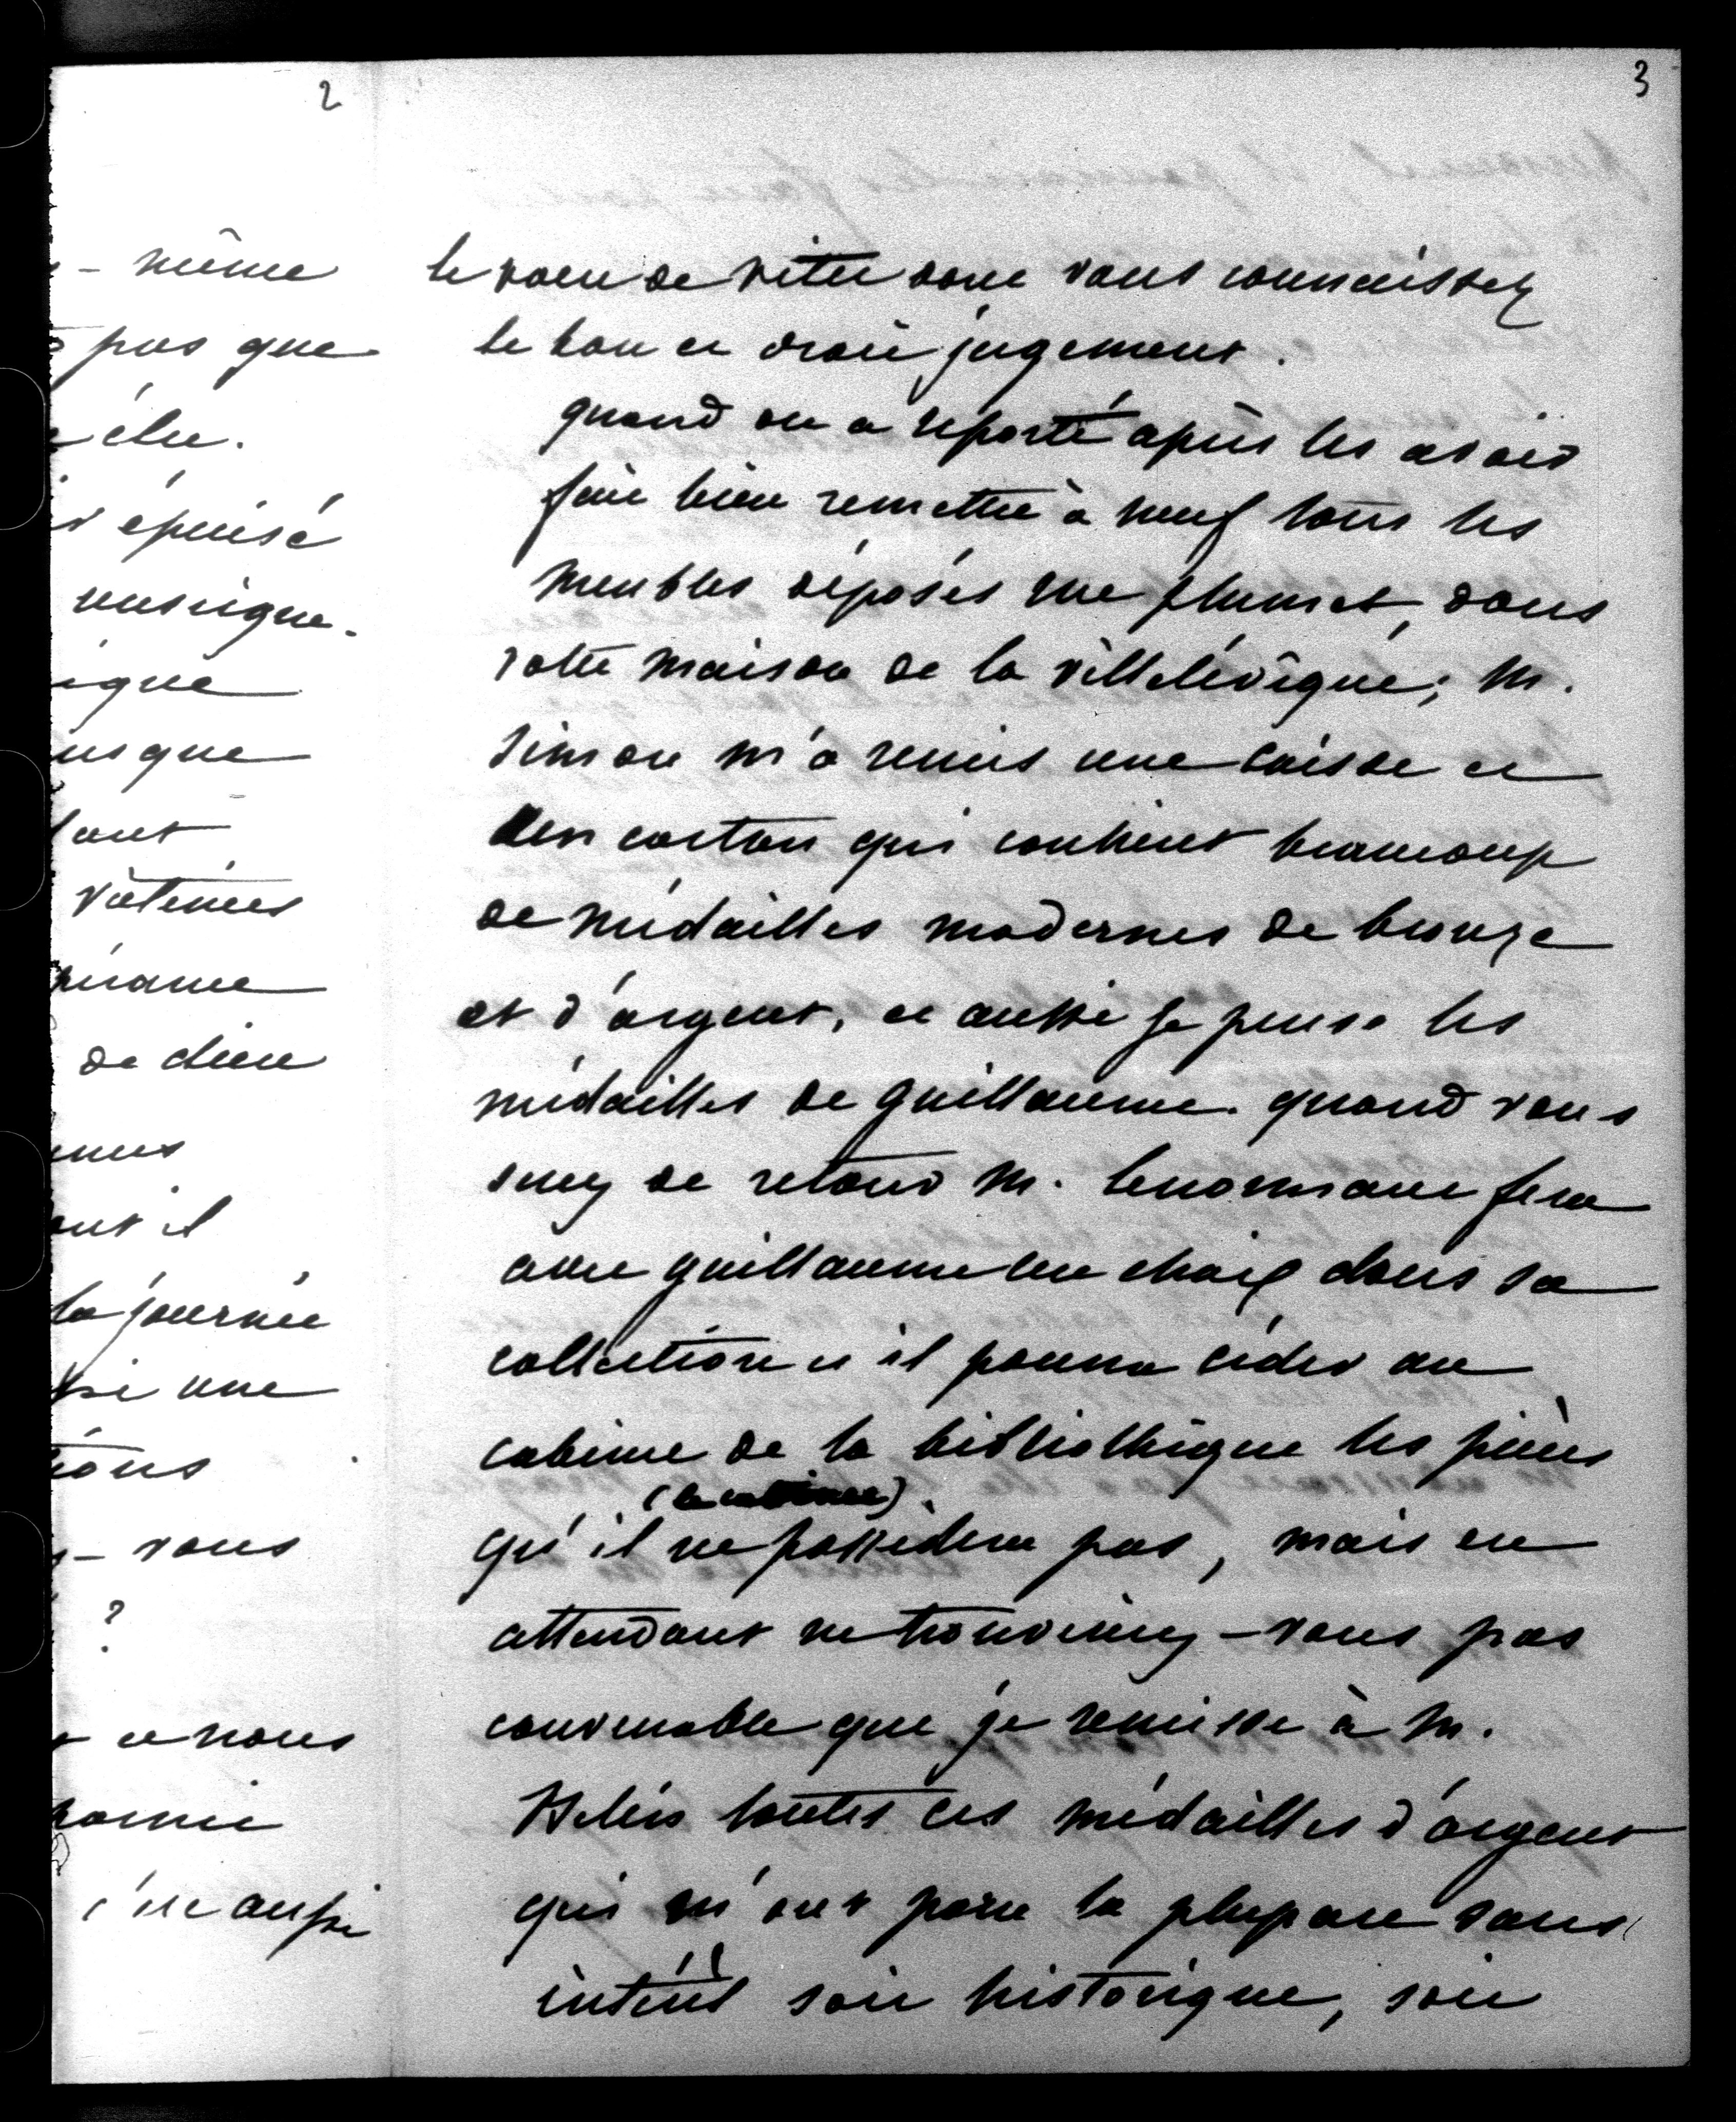 2
- même
pas que
élu.
épuisé
musique.
ique
usque
ont
victimes
de dieu
la journée
une
- vous
?
nous
aussi
3
le voeu de vitet dont vous connaissez
le bon et droit jugement.
quand on a reporté après les avoir
fait bien remettre à neuf tous les
meubles déposés rue plumet, dans
votre maison de la villelévêque; M.
Simon m'a remis une caisse et
un carton qui contient beaucoup
de médailles modernes de bronze
et d'argent, et aussi je pense les
médailles de guillaume. quand vous
serez de retour M. lenormant fera
avec guillaume un choix dans sa
collection et il pourra céder au
cabinet de la bibliothèque les pièces
(le cabinet)
qu'il ne possèdera pas, mais en
attendant ne trouveriez-vous pas
convenable que je remisse à M.
toutes ces médailles d'argent
qui m'ont paru la plupart sans
intérêt soit historique, soit